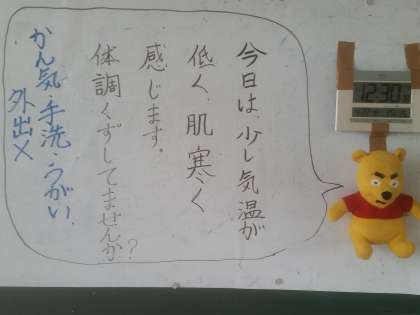 今日は、少し気温が
低く、肌寒く
感じます。
体調くずしてませんか?
かん気・手洗・うがい
外出×
12:30